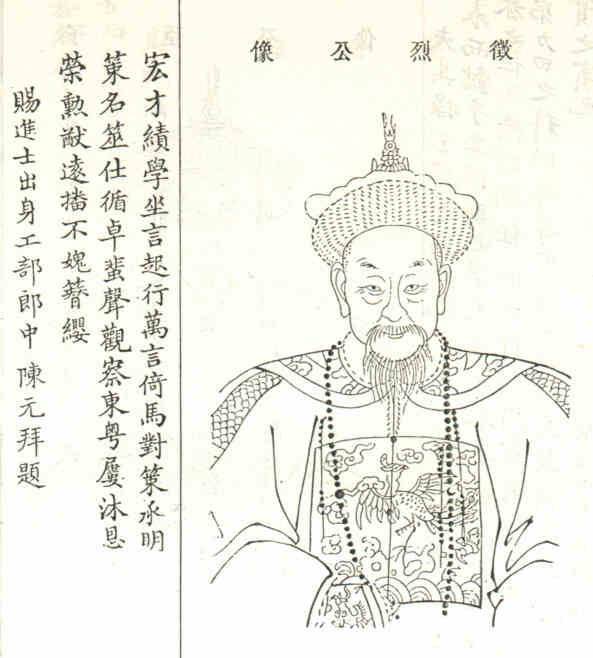 徵烈公像
宏才績學坐言起行萬言倚馬對策承明
策名筮仕循卓蜚聲觀察東粵屢沐恩
榮勳猷遠播不媿簪纓
賜進士出身工部郎中陳元拜題